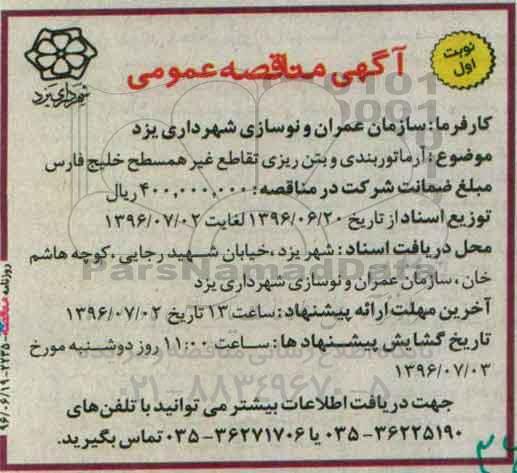 نوبت
اول
آگهی مناقصه عمومی
شهرداری یزد
کارفرما: سازمان عمران و نوسازی شهرداری یزد
موضوع: آرماتوربندی و بتن ریزی تقاطع غیر همسطح خلیج فارس
مبلغ ضمانت شرکت در مناقصه: ۴۰۰,۰۰۰,۰۰۰ ریال
توزیع اسناد از تاریخ ۱۳۹۶/۰۶/۲۰ لغایت ۱۳۹۶/۰۷/۰۲
محل دریافت اسناد: شهر یزد، خیابان شهید رجایی، کوچه هاشم
خان، سازمان عمران و نوسازی شهرداری یزد
آخرین مهلت ارائه پیشنهاد: ساعت ۱۳ تاریخ ۱۳۹۶/۰۷/۰۲
تاریخ گشایش پیشنهاد ها: ساعت ۱۱:۰۰ روز دوشنبه مورخ
۱۳۹۶/۰۷/۰۳
جهت دریافت اطلاعات بیشتر می توانید با تلفن های
۰۳۵-۳۶۲۲۵۱۹۰ یا ۰۳۵-۳۶۲۷۱۷۰۶ تماس بگیرید.
ParsNamadData
۰۲۱-۸۸۳۴۹۶۷۰-۵
روزنامه مناقصه ۹۶/۰۶/۱۹-۲۲۳۵